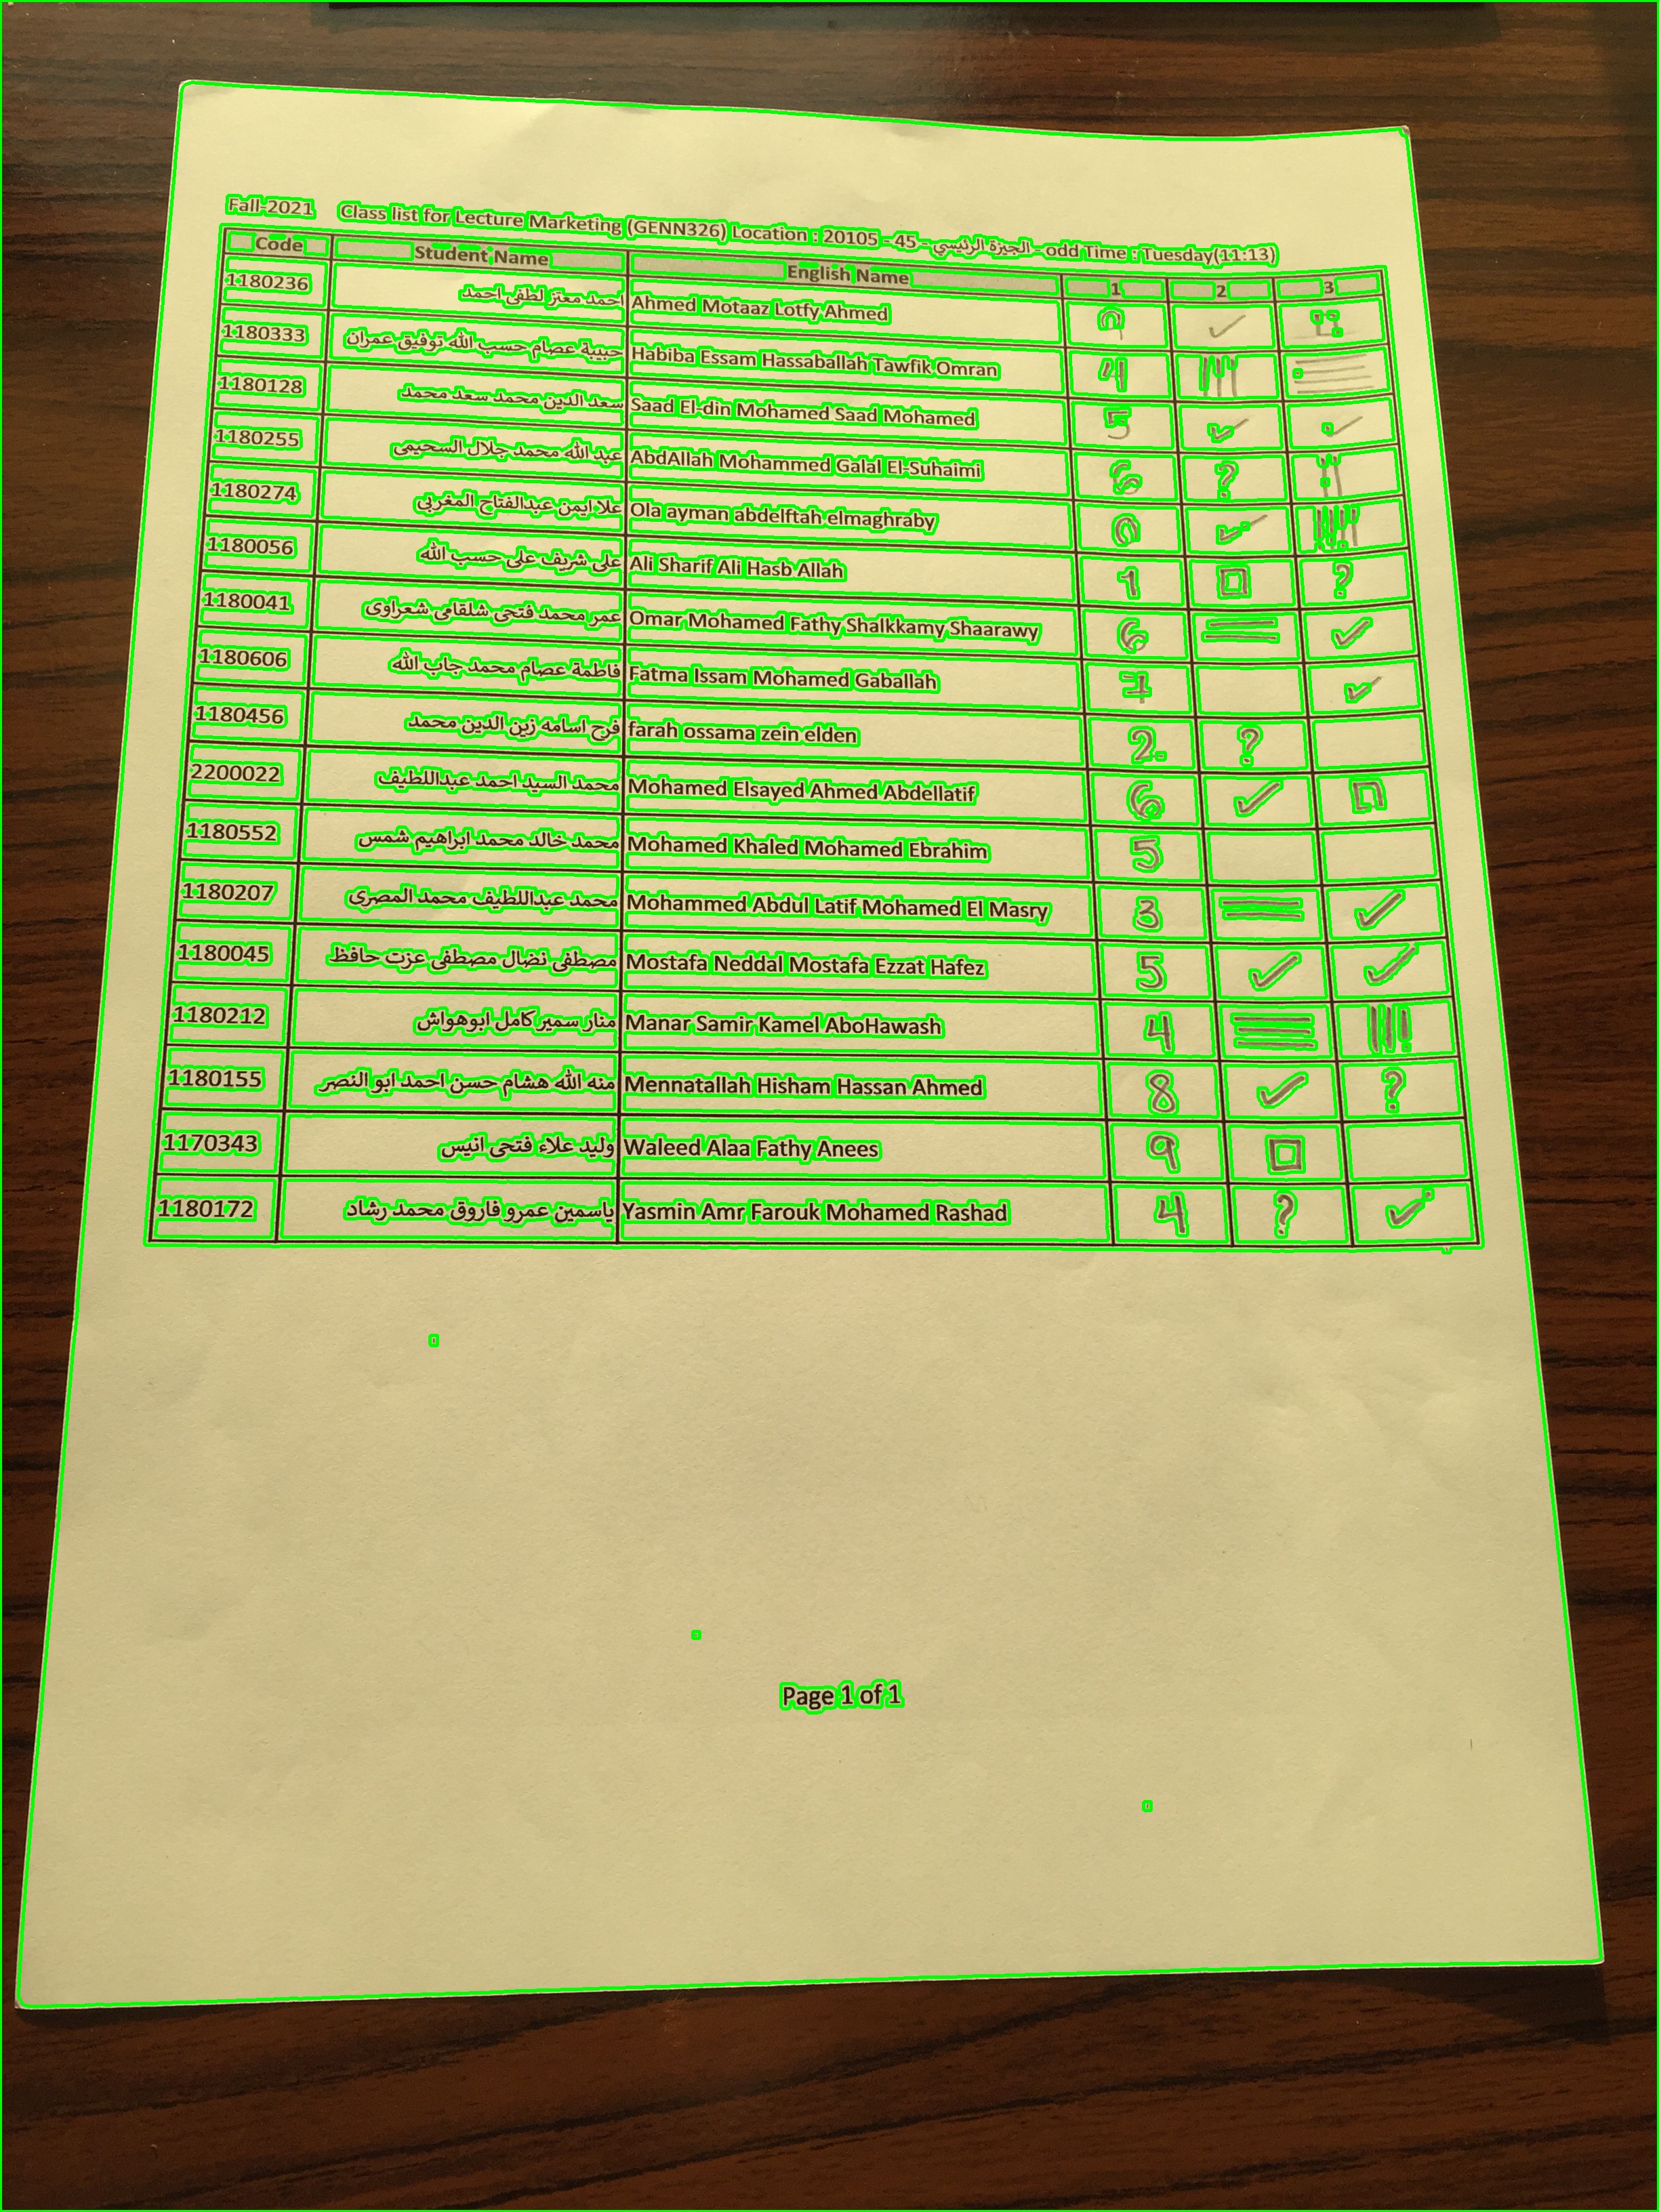 Fall-2021 Class list for Lecture Marketing (GENN326) Location : 20105 - 45 - الجيزة الرئيسي - odd Time : Tuesday(11:13)
Code Student Name English Name 1 2 3
1180236 احمد معتز لطفى احمد Ahmed Motaaz Lotfy Ahmed 9 ✓
1180333 حبيبة عصام حسب الله توفيق عمران Habiba Essam Hassaballah Tawfik Omran 4
1180128 سعد الدين محمد سعد محمد Saad El-din Mohamed Saad Mohamed 5 ✓ ✓
1180255 عبد الله محمد جلال السحيمى AbdAllah Mohammed Galal El-Suhaimi 6 ?
1180274 علا ايمن عبدالفتاح المغربى Ola ayman abdelftah elmaghraby 0 ✓
1180056 على شريف على حسب الله Ali Sharif Ali Hasb Allah 1 □ ?
1180041 عمر محمد فتحى شلقامى شعراوى Omar Mohamed Fathy Shalkkamy Shaarawy 6 ✓
1180606 فاطمة عصام محمد جاب الله Fatma Issam Mohamed Gaballah 7 ✓
1180456 فرح اسامه زين الدين محمد farah ossama zein elden 2 ?
2200022 محمد السيد احمد عبداللطيف Mohamed Elsayed Ahmed Abdellatif 6 ✓ □
1180552 محمد خالد محمد ابراهيم شمس Mohamed Khaled Mohamed Ebrahim 5
1180207 محمد عبداللطيف محمد المصرى Mohammed Abdul Latif Mohamed El Masry 3 ✓
1180045 مصطفى نضال مصطفى عزت حافظ Mostafa Neddal Mostafa Ezzat Hafez 5 ✓ ✓
1180212 منار سمير كامل ابوهواش Manar Samir Kamel AboHawash 4
1180155 منه الله هشام حسن احمد ابو النصر Mennatallah Hisham Hassan Ahmed 8 ✓ ?
1170343 وليد علاء فتحى انيس Waleed Alaa Fathy Anees 9 □
1180172 ياسمين عمرو فاروق محمد رشاد Yasmin Amr Farouk Mohamed Rashad 4 ? ✓
Page 1 of 1